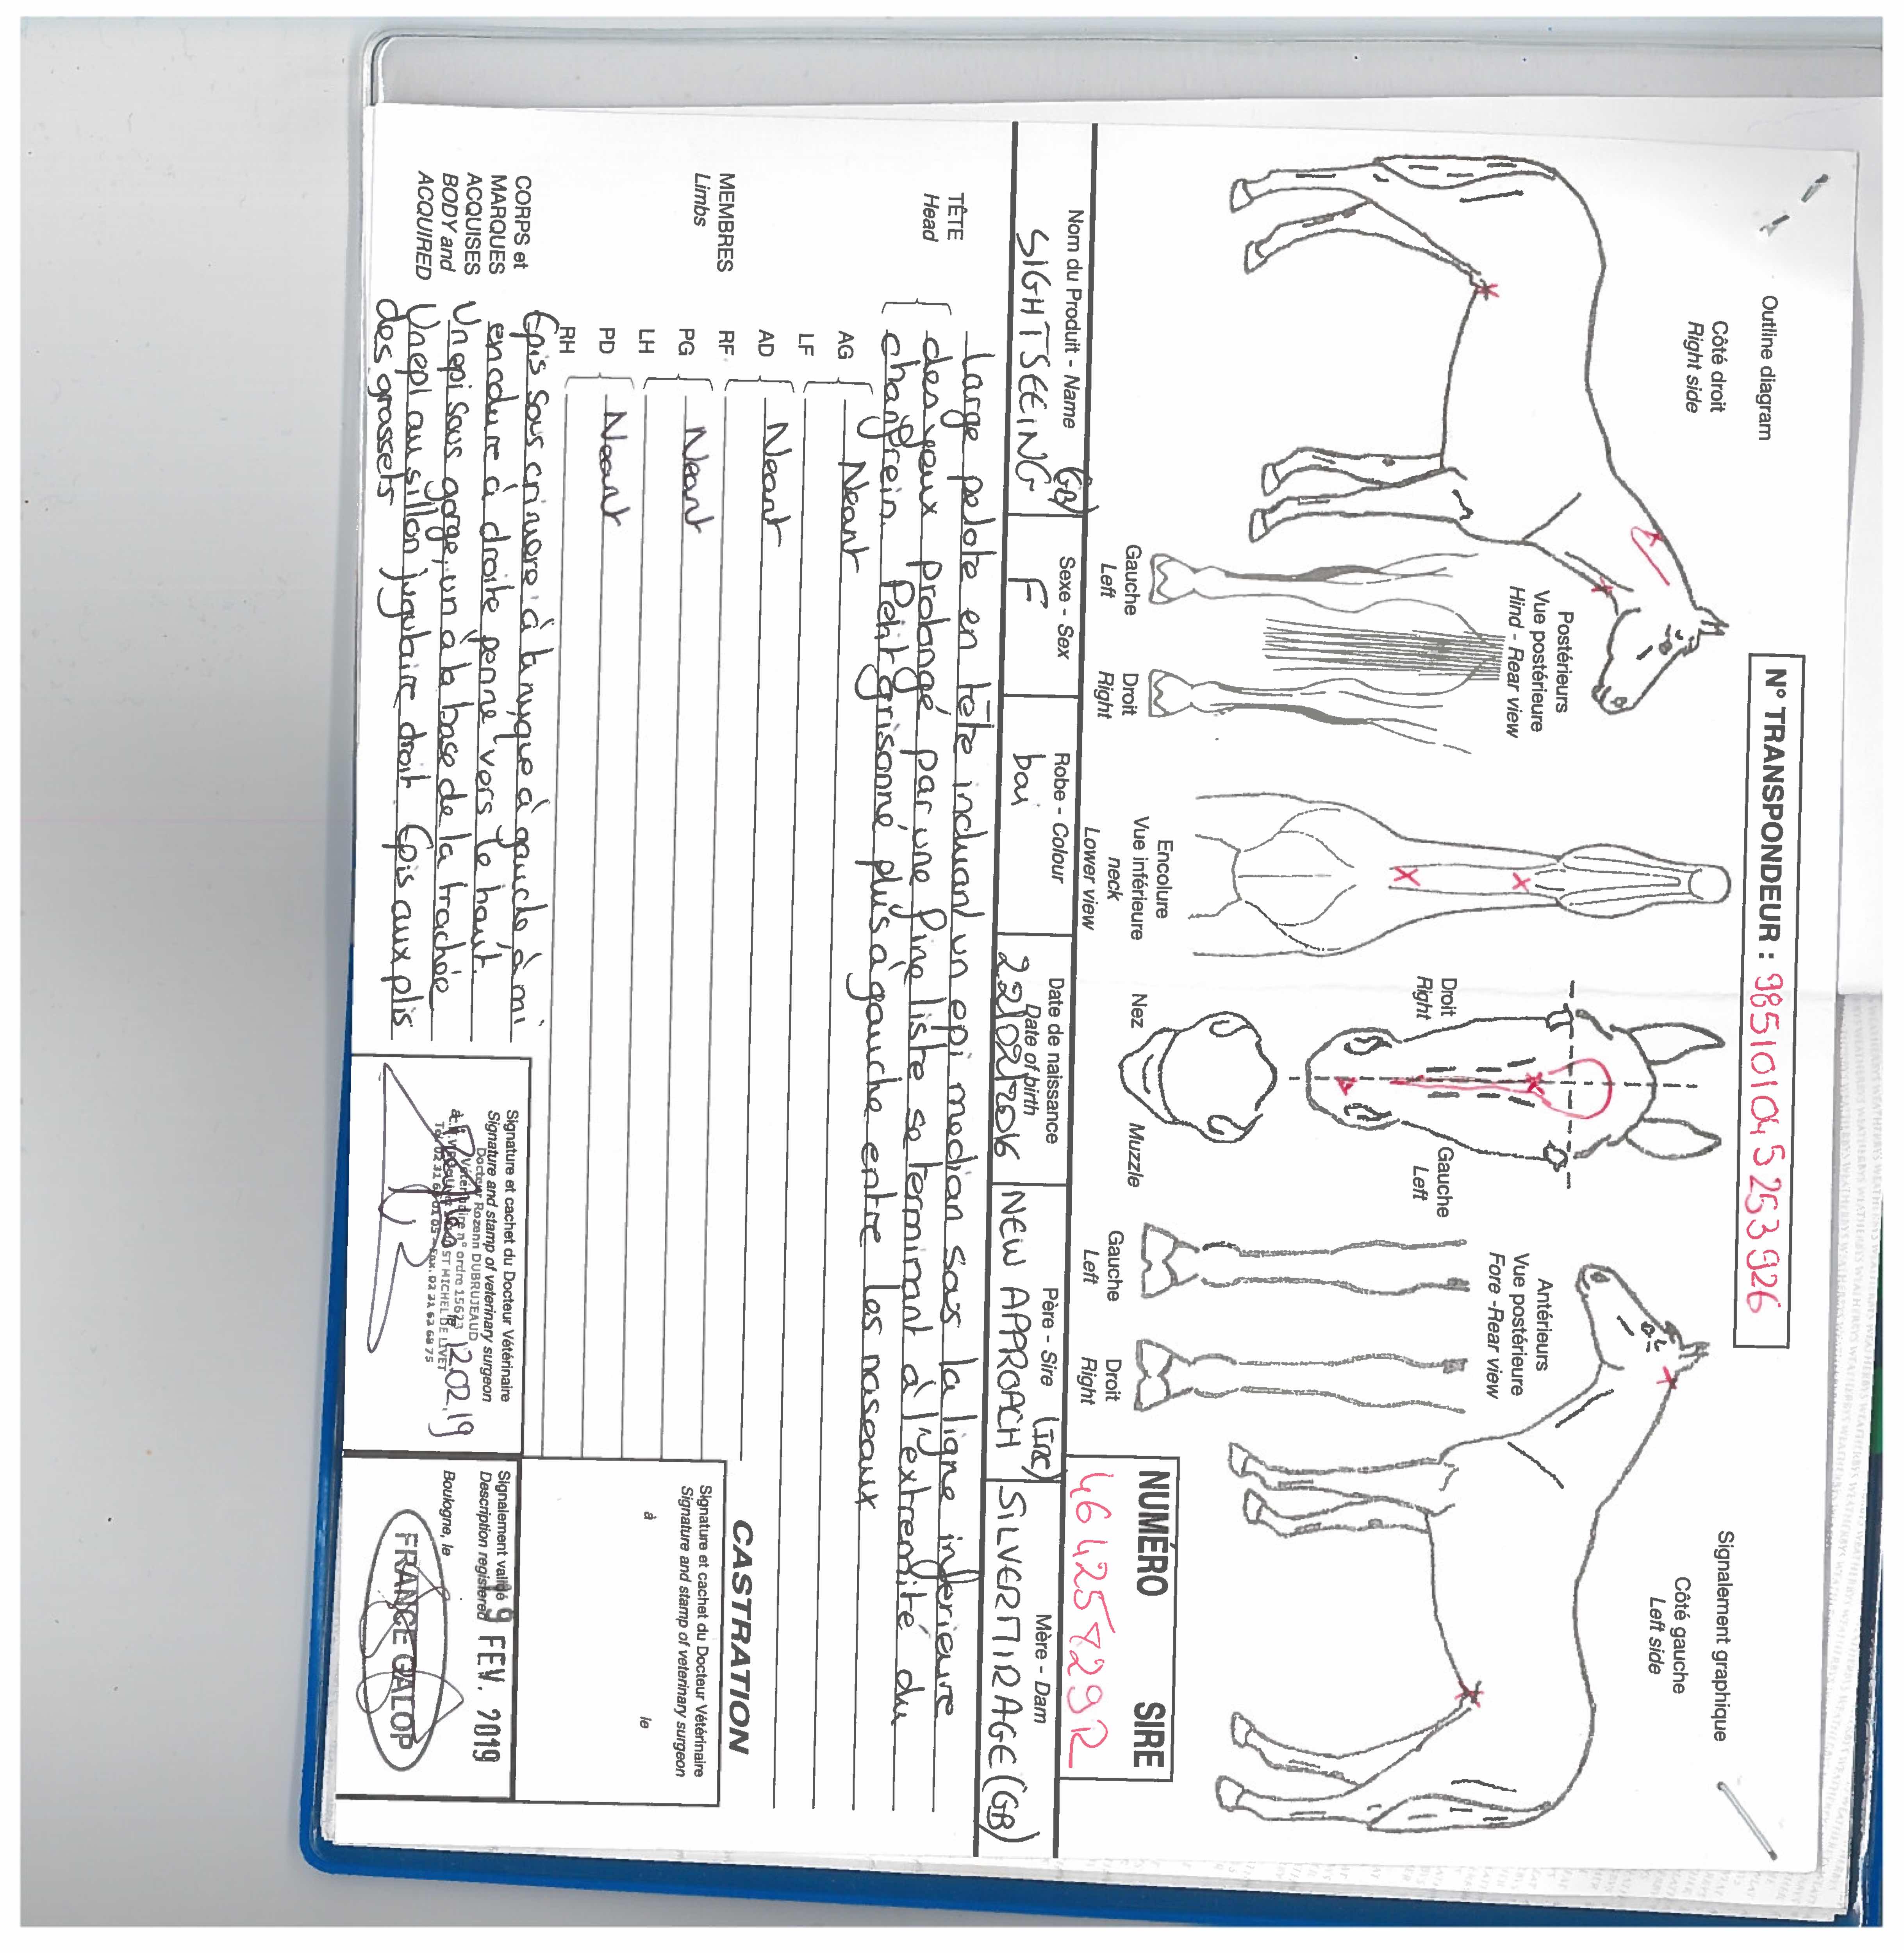 Outline diagram
Côté droit
Right side
N° TRANSPONDEUR : 985101045253926
Signalement graphique
Côté gauche
Left side
Postérieurs
Vue postérieure
Hind - Rear view
Gauche
Left
Droit
Right
Encolure
Vue inférieure
neck
Lower view
Droit
Right
Gauche
Left
Nez
Muzzle
Antérieurs
Vue postérieure
Fore -Rear view
Gauche
Left
Droit
Right
NUMÉRO SIRE
Nom du Produit - Name
SIGHTSEEING (GB)
Sexe - Sex
F
Robe - Colour
bai
Date de naissance
Date of birth
22/02/2016
Père - Sire
NEW APPROACH (IRE)
Mère - Dam
SILVERMIRAGE (GB)
TÊTE
Head
Large pelote en tête incluant un epi median sous la ligne inferieure
des yeux prolongé par une fine liste se terminant à l'extremité du
chanfrein. Petit grisonné plus à gauche entre les naseaux
MEMBRES
Limbs
AG
LF
Neant
AD
RF
Neant
PG
LH
Neant
PD
RH
Neant
CORPS et
MARQUES
ACQUISES
BODY and
ACQUIRED
Epis sous criniere : à la nuque à gauche à mi
encolure à droite penné vers le haut.
Un epi sous gorge, un à la base de la trachée
Un epi au sillon jugulaire droit Epis aux plis
des grassets
CASTRATION
Signature et cachet du Docteur Vétérinaire
Signature and stamp of veterinary surgeon
à le
Signature et cachet du Docteur Vétérinaire
Signature and stamp of veterinary surgeon
Docteur Rozenn DUBRUJEAUD
Vétérinaire n° ordre 15623
ST MICHEL DE LIVET
12.02.19
Signalement validé
Description registered
19 FEV. 2019
Boulogne, le
FRANCE GALOP